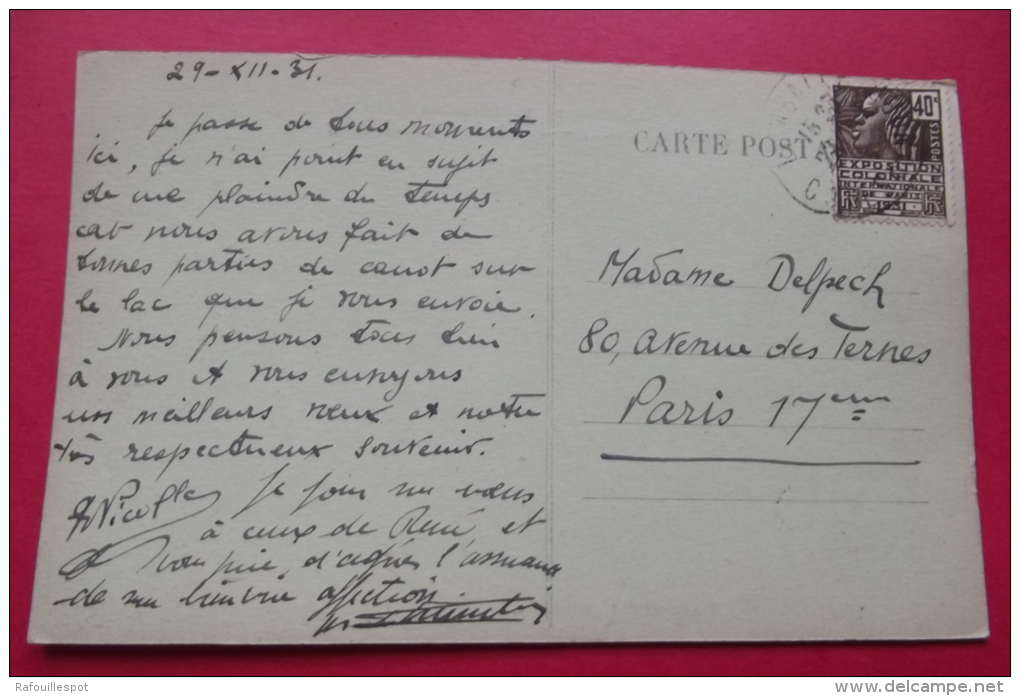 29-XII-31.
Je passe de bons moments
ici, je n'ai point eu sujet
de me plaindre du temps
car nous avons fait de
bonnes parties de canot sur
le lac que je vous envoie.
Nous pensons tous bien
à vous et vous envoyons
nos meilleurs vœux et notre
très respectueux souvenir.
Je joins mes vœux
à ceux de René et
vous prie, d'agréer l'assurance
de ma sincère affection.
CARTE POST
40c
POSTES
EXPOSITION
COLONIALE
INTERNATIONALE
DE PARIS
1931
Madame Delpech
80, avenue des Ternes
Paris 17eme
Rafouillespot
www.delcampe.net